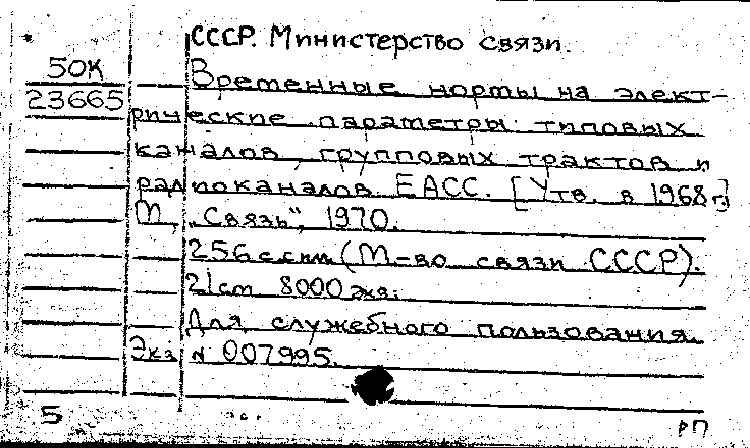 СССР. Министерство связи.
50К
Временные нормы на элект-
23665
рические параметры типовых
каналов, групповых трактов и
радиоканалов ЕАСС. [Утв. в 1968 г.]
М., „Связь", 1970.
256 с. с ил. (М-во связи СССР).
21 см 8000 экз.
Для служебного пользования.
Экз. № 007995.
5
РП